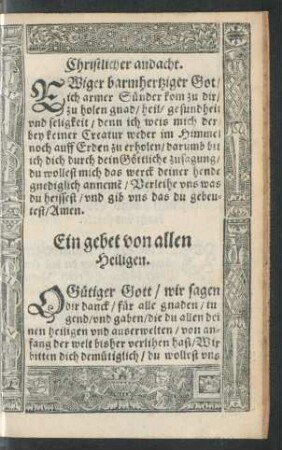 Christlicher andacht.
EWiger barmhertziger Got/
ich armer Sünder kom zu dir/
zu holen gnad/ heil/ gesundheit
vnd seligkeit/ denn ich weis mich der
bey keiner Creatur weder im Himmel
noch auff Erden zu erholen/ darumb bit
ich dich durch dein Göttliche zusagung/
du wollest mich das werck deiner hende
gnediglich annemē/ Verleihe vns was
du heissest/ vnd gib vns das du gebeu-
test/ Amen.
Ein gebet von allen
Heiligen.
O Gütiger Gott/ wir sagen
dir danck/ für alle gnaden/ tu
gend/ vnd gaben/ die du allen dei
nen heiligen vnd auserwelten/ von an-
fang der welt bisher verlihen hast/ Wir
bitten dich demütiglich/ du wollest vns